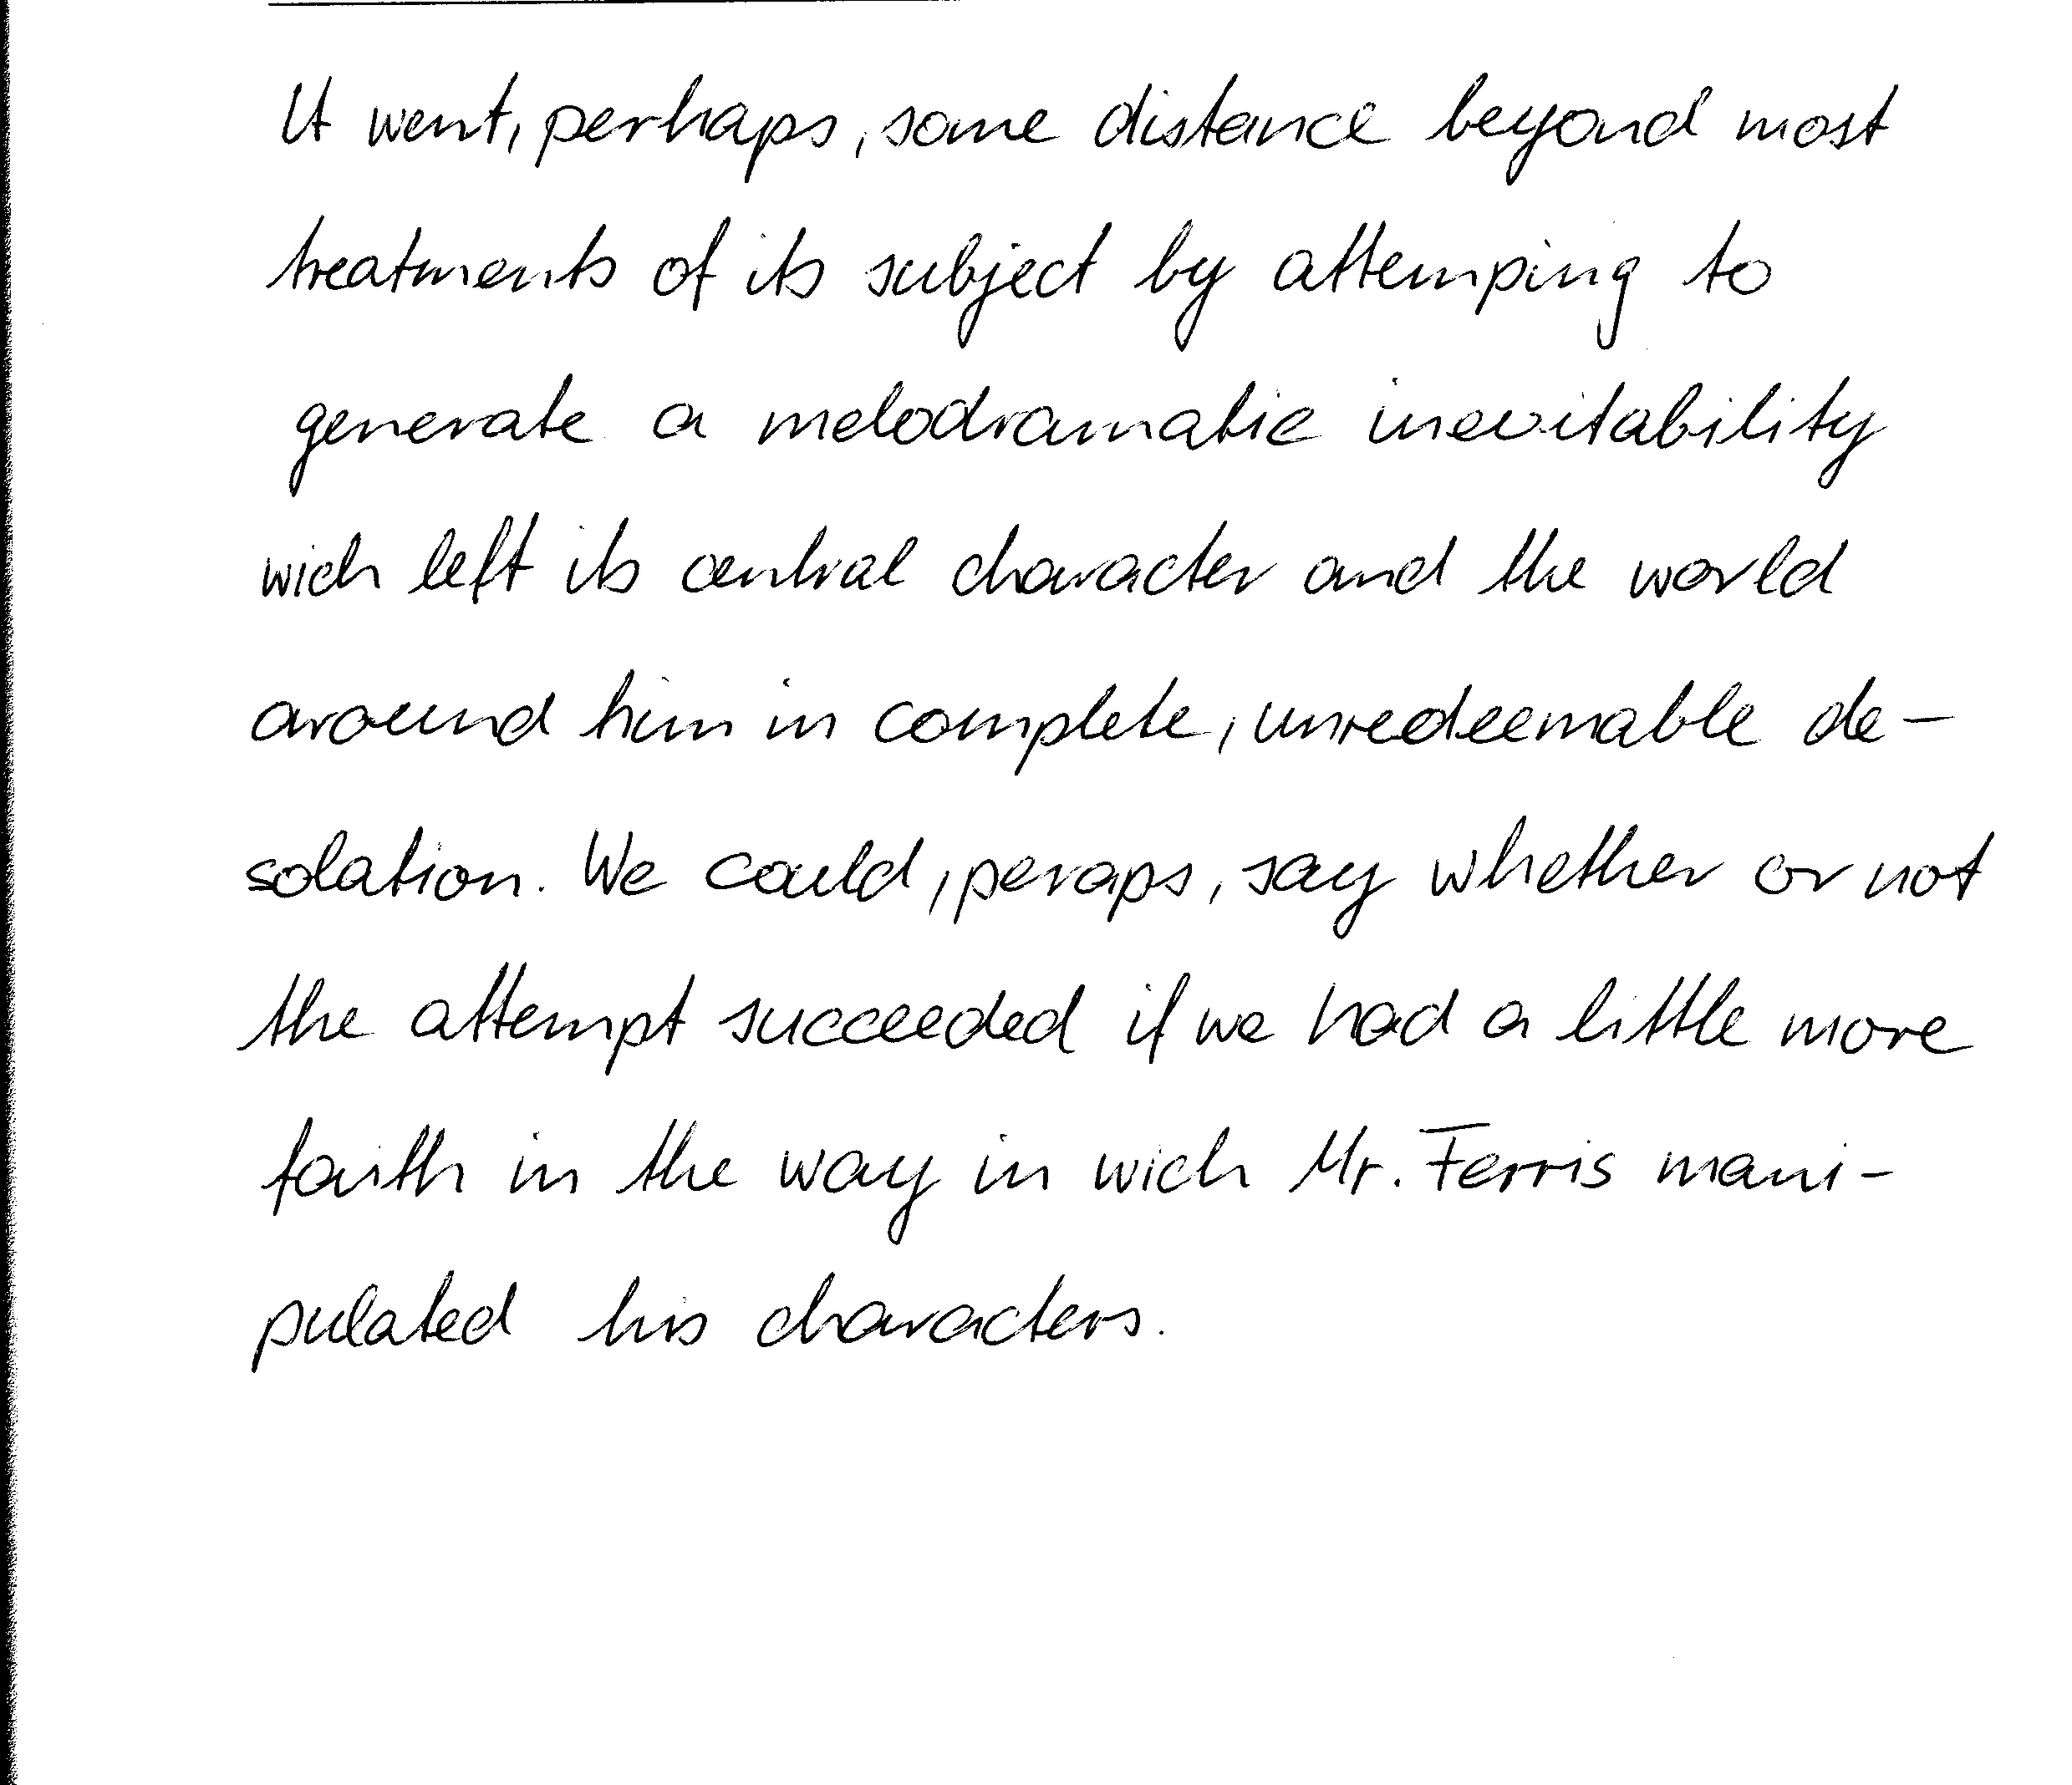 It went, perhaps, some distance beyond most
treatments of its subject by attemping to
generate a melodramatic inevitability
wich left its central character and the world
around him in complete, unredeemable de-
solation. We could, peraps, say whether or not
the attempt succeeded if we had a little more
faith in the way in wich Mr. Ferris mani-
pulated his characters.